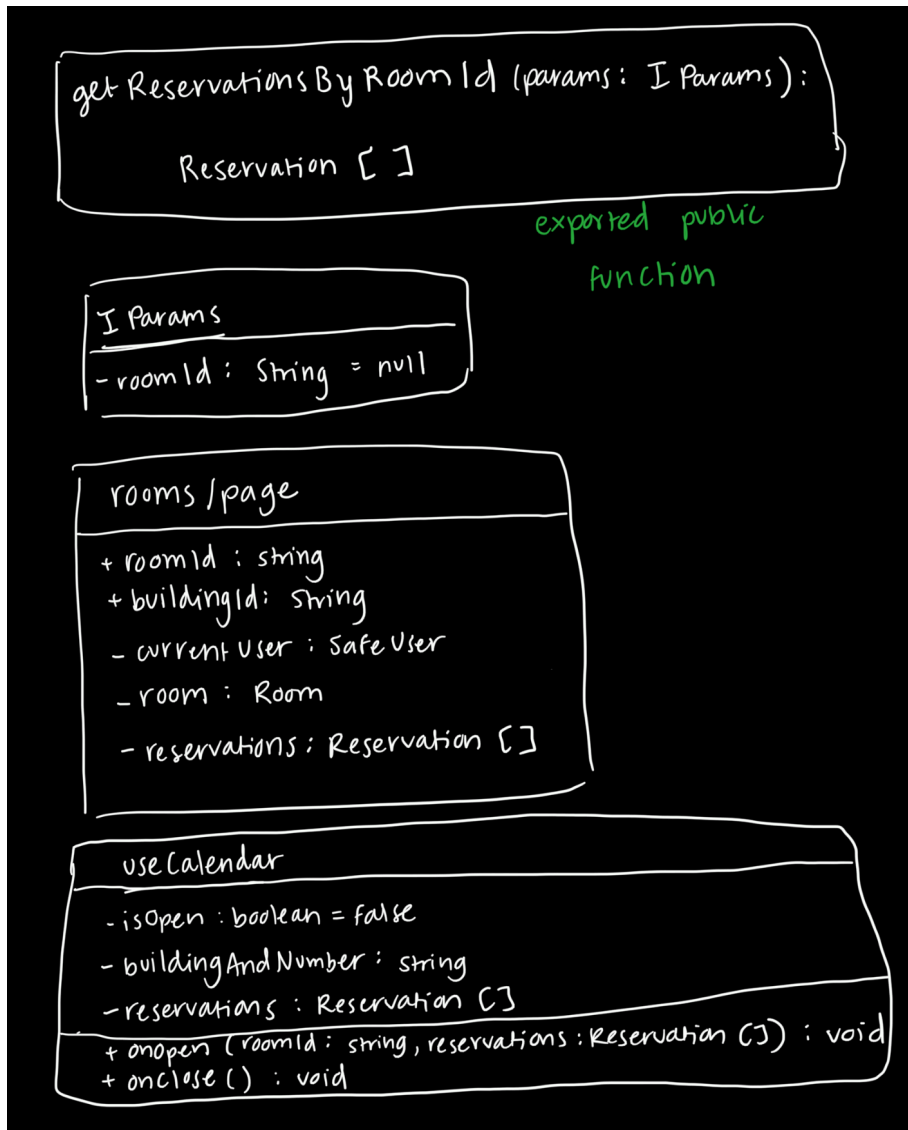 getReservationsByRoomId (params: IParams):
Reservation []
exported public
function
IParams
- roomId: string = null
rooms/page
+ roomId : string
+ buildingId: string
- currentUser : SafeUser
- room : Room
- reservations: Reservation []
useCalendar
- isOpen : boolean = false
- buildingAndNumber: string
- reservations : Reservation []
+ onopen (roomId: string, reservations: Reservation []) : void
+ onclose() : void